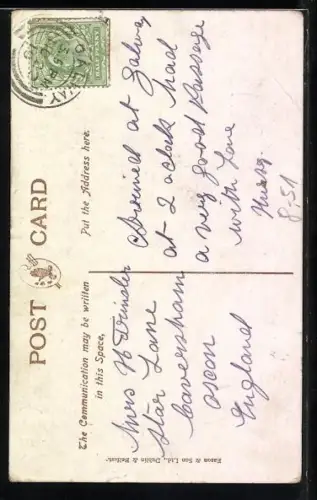 POST CARD
The Communication may be written
in this Space,
Put the Address here.
GALWAY
Arrived at Galway
at 2 oclock had
a very good Passage
with Love
8,51
Miss H
Star Lane
Caversham
oxon
England
Eason & Son Ltd., Dublin & Belfast